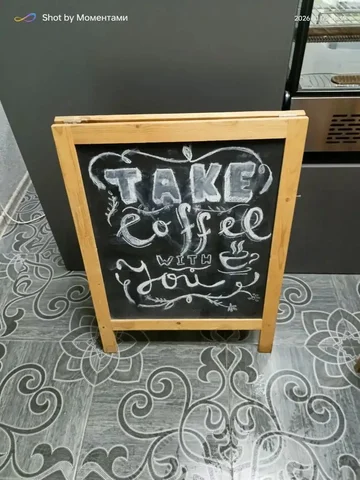 Shot by Моментами
TAKE
Coffee
WITH
You